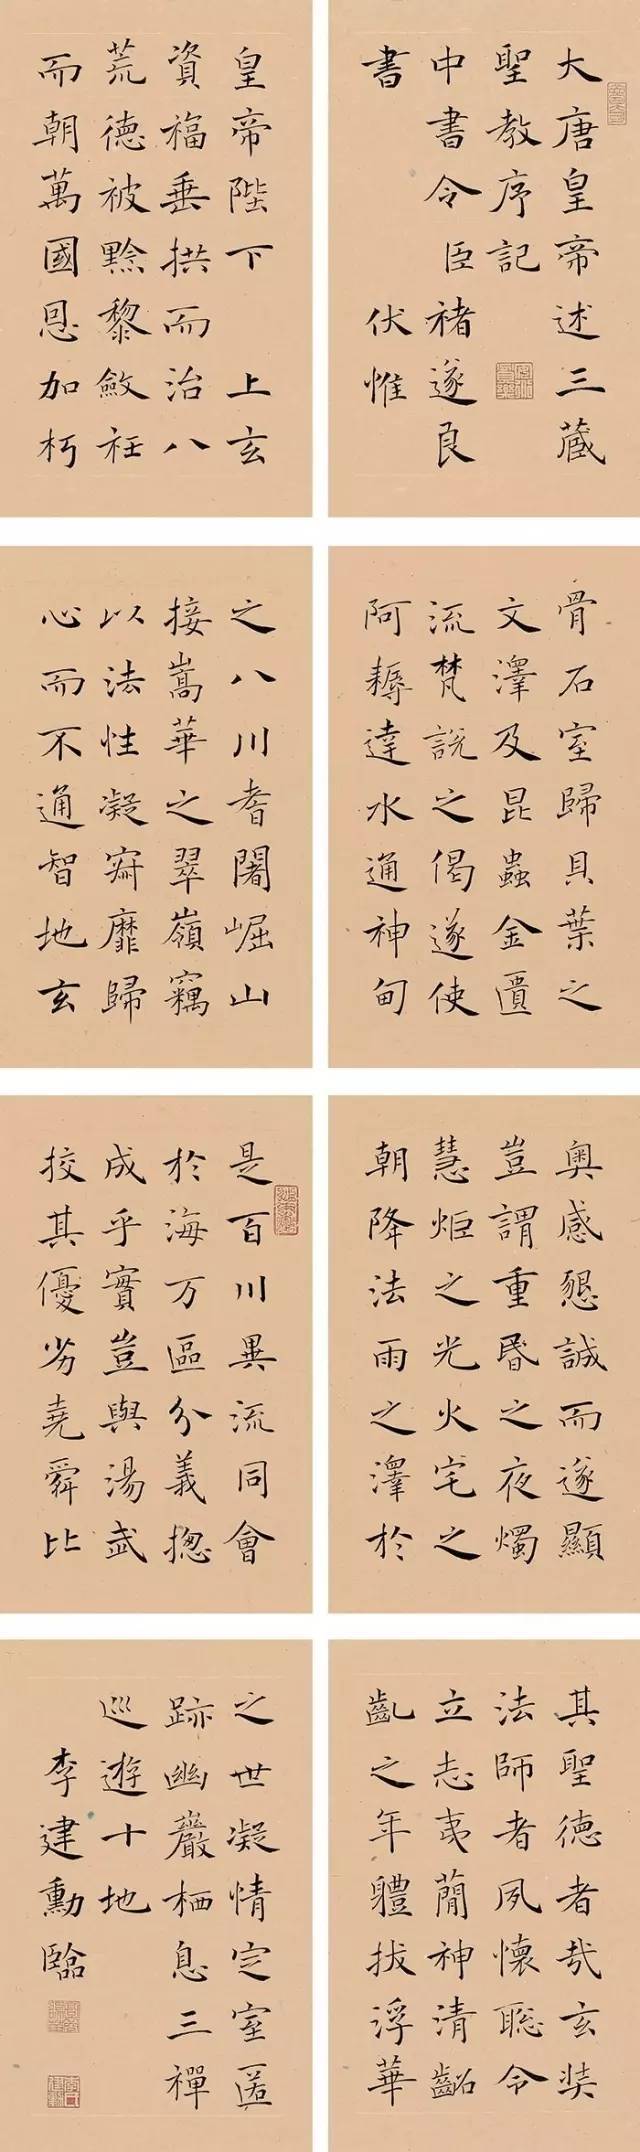 大唐皇帝述三藏
聖教序記
中書令臣褚遂良
書 伏惟
皇帝陛下 上玄
資福垂拱而治八
荒德被黔黎斂衽
而朝萬國恩加朽
骨石室歸貝葉之
文澤及昆蟲金匱
流梵說之偈遂使
阿耨達水通神甸
之八川耆闍崛山
接嵩華之翠嶺竊
以法性凝寂靡歸
心而不通智地玄
奧感懇誠而遂顯
豈謂重昬之夜燭
慧炬之光火宅之
朝降法雨之澤於
是百川異流同會
於海万區分義揔
成乎實豈與湯武
挍其優劣堯舜比
其聖德者哉玄奘
法師者夙懷聡令
立志夷蕳神清齠
齓之年軆拔浮華
之世凝情定室匿
跡幽巖栖息三禪
巡遊十地
李建勳臨